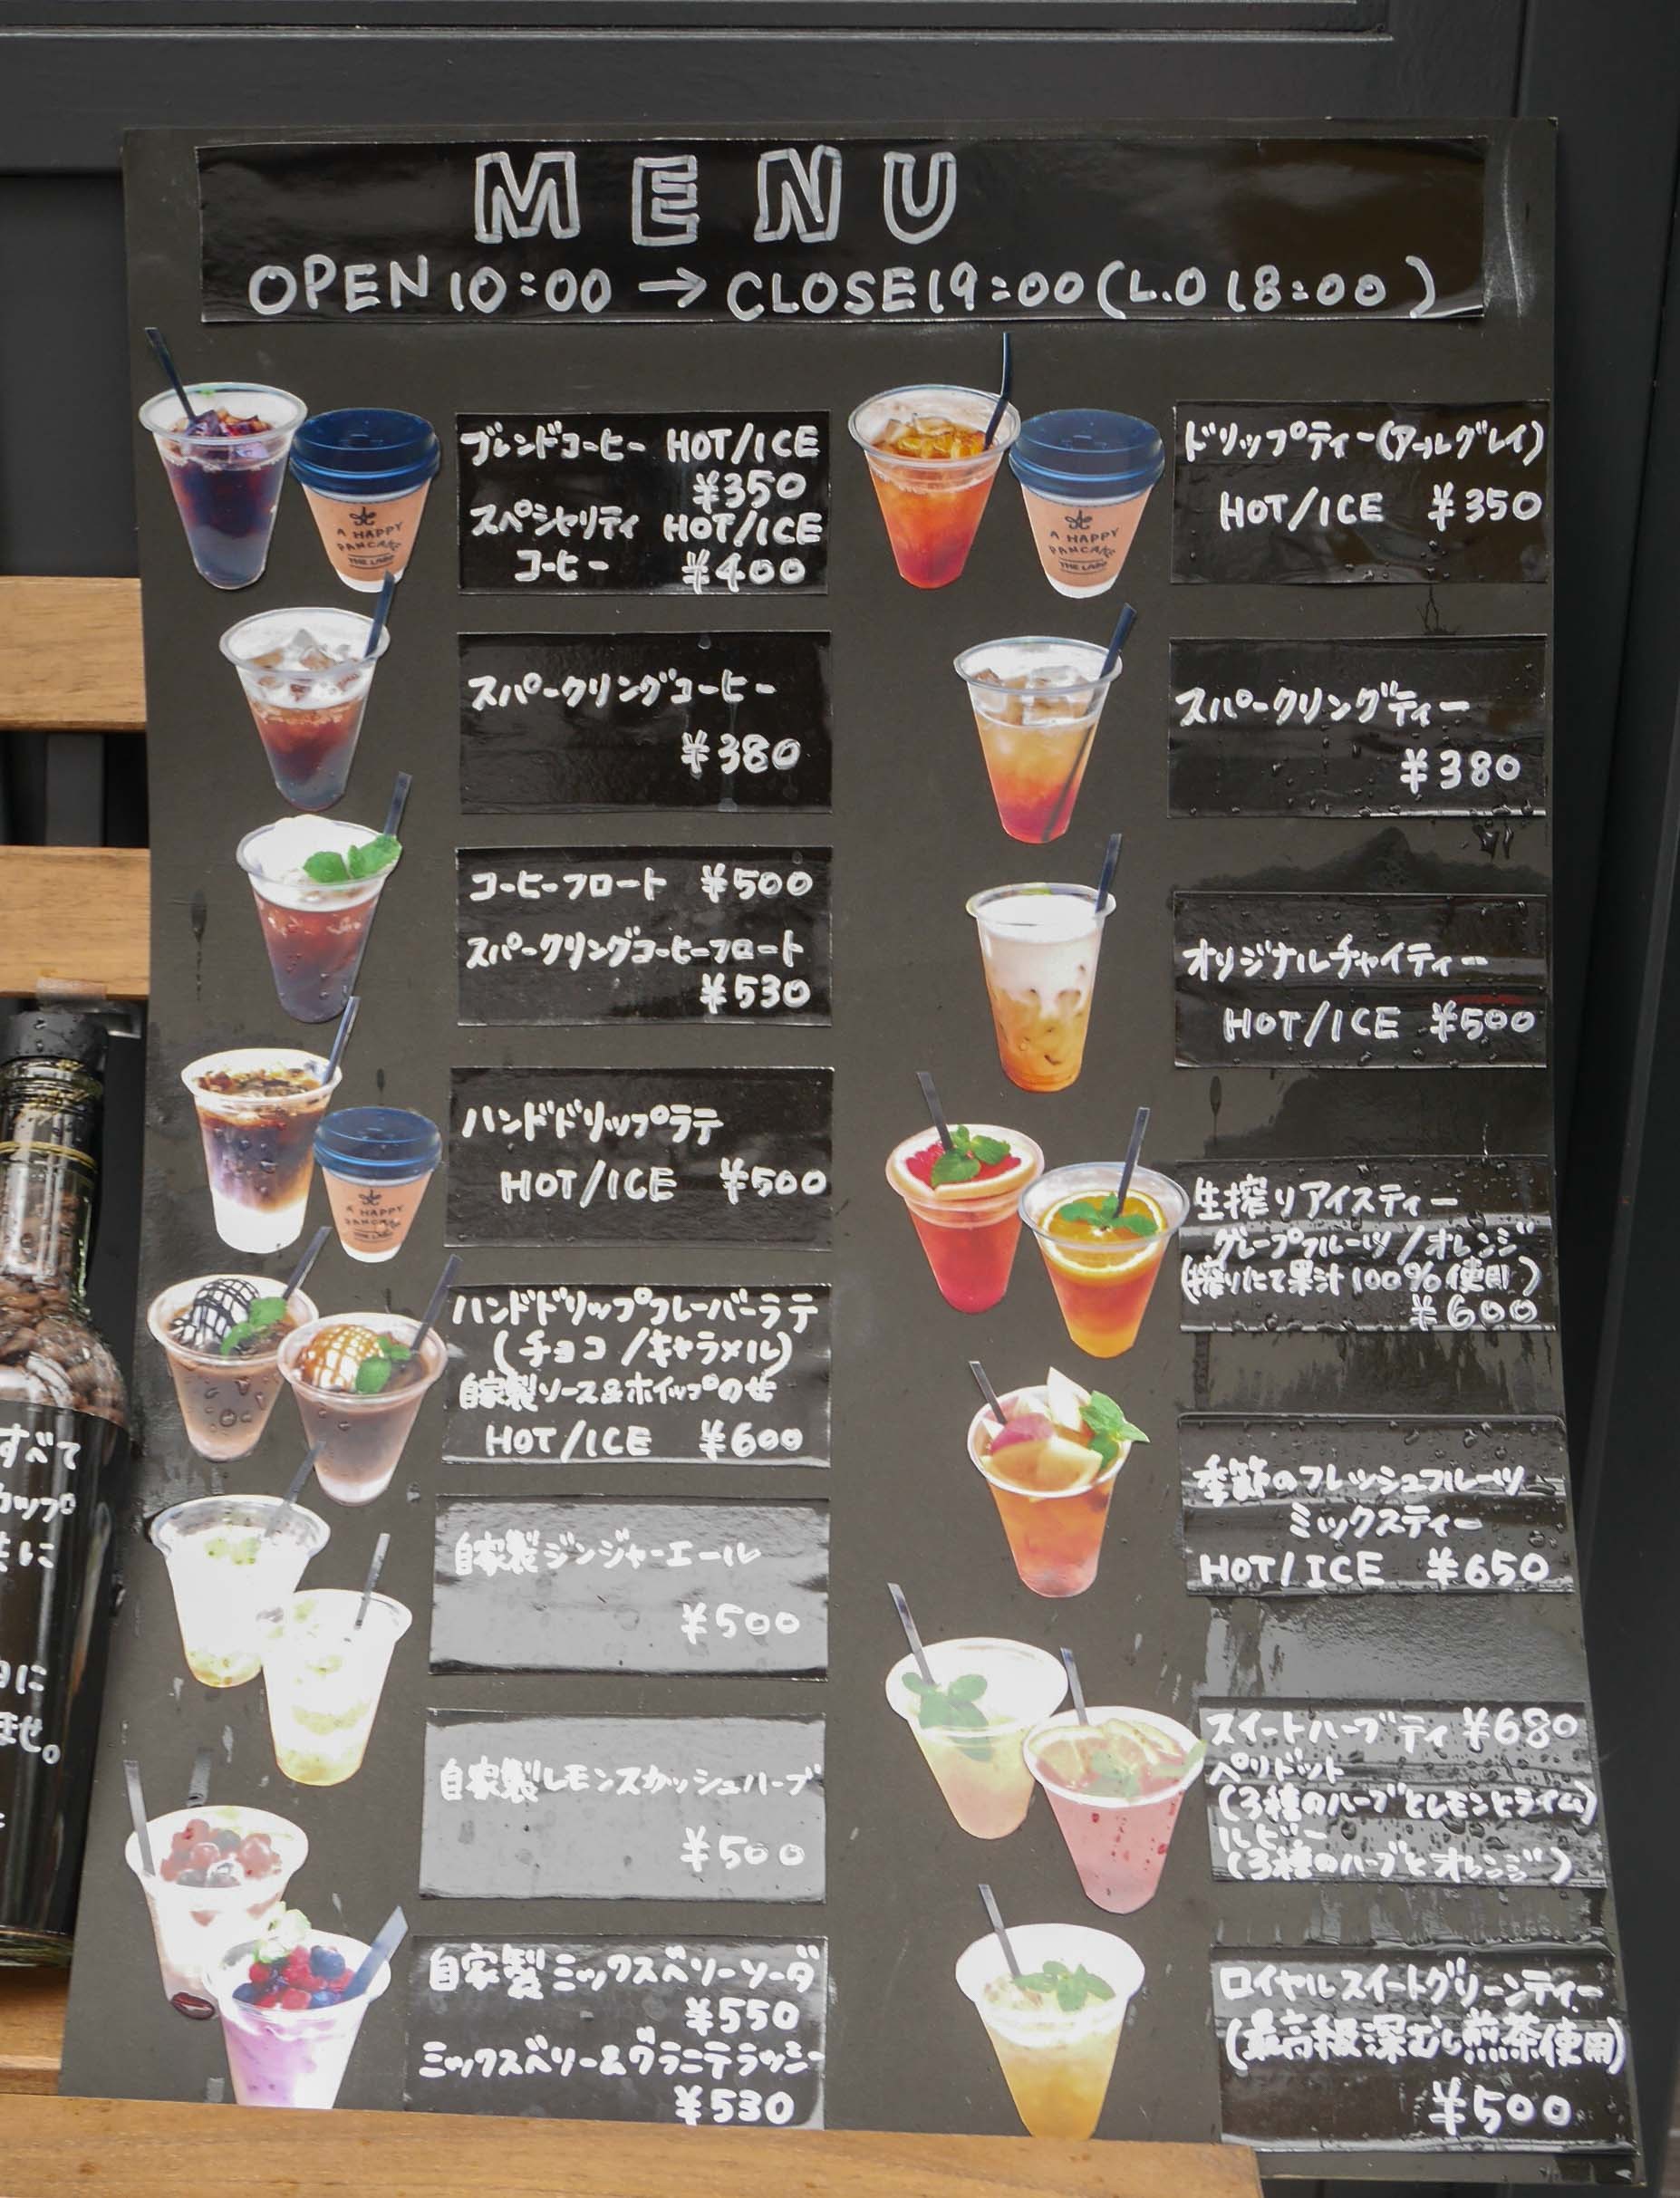 MENU
OPEN 10:00 → CLOSE 19:00 (L.O 18:00)
ブレンドコーヒー HOT/ICE
¥350
スペシャリティ HOT/ICE
コーヒー ¥400
スパークリングコーヒー
¥380
コーヒーフロート ¥500
スパークリングコーヒーフロート
¥530
ハンドドリップラテ
HOT/ICE ¥500
ハンドドリップフレーバーラテ
(チョコ/キャラメル)
自家製ソース&ホイップのせ
HOT/ICE ¥600
自家製ジンジャーエール
¥500
自家製レモンスカッシュハーブ
¥500
自家製ミックスベリーソーダ
¥550
ミックスベリー&グラニテラッシー
¥530
ドリップティー(アールグレイ)
HOT/ICE ¥350
スパークリングティー
¥380
オリジナルチャイティー
HOT/ICE ¥500
生搾りアイスティー
グレープフルーツ/オレンジ
(搾りたて果汁100%使用)
¥600
季節のフレッシュフルーツ
ミックスティー
HOT/ICE ¥650
スイートハーブティ ¥680
ペリドット
(3種のハーブとレモンとライム)
ルビー
(3種のハーブとオレンジ)
ロイヤルスイートグリーンティー
(最高級深むし煎茶使用)
¥500
A HAPPY
PANCAKE
THE LABO
A HAPPY
PANCAKE
THE LABO
A HAPPY
PANCAKE
すべて
カップ
に
に
ませ。